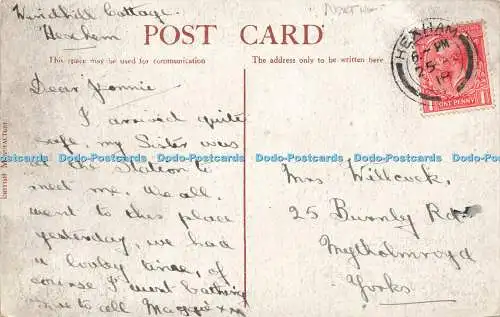 Windhill Cottage
Hexham
POST CARD
This space may be used for communication
The address only to be written here
HEXHAM
6 PM
25
ONE PENNY
BRITISH MANUFACTURE
Dear Jonnie
I arrived quite
safe my Sister was
at the Station to
meet me. We all
went to this place
yesterday, we had
a lovley time, of
course I went bathing
to tell Maggie xx
Mrs Willcock,
25 Burnley Rd
Mytholmroyd
Yorks.
Dodo-Postcards Dodo-Postcards Dodo-Postcards Dodo-Postcards Dodo-Postcards
Dodo-Postcards Dodo-Postcards Dodo-Postcards Dodo-Postcards Dodo-Postcards